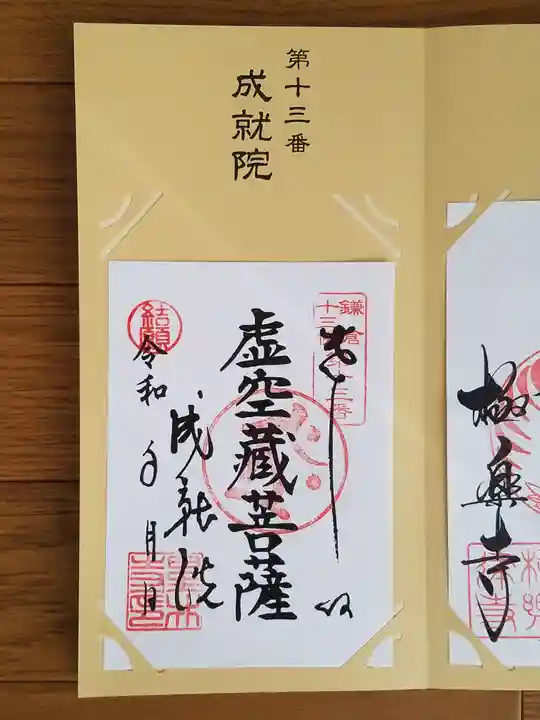 第十三番
成就院
鎌倉
十三
十三番
奉拝
虚空蔵菩薩
結願
成就院
令和 年 月 日
極楽寺